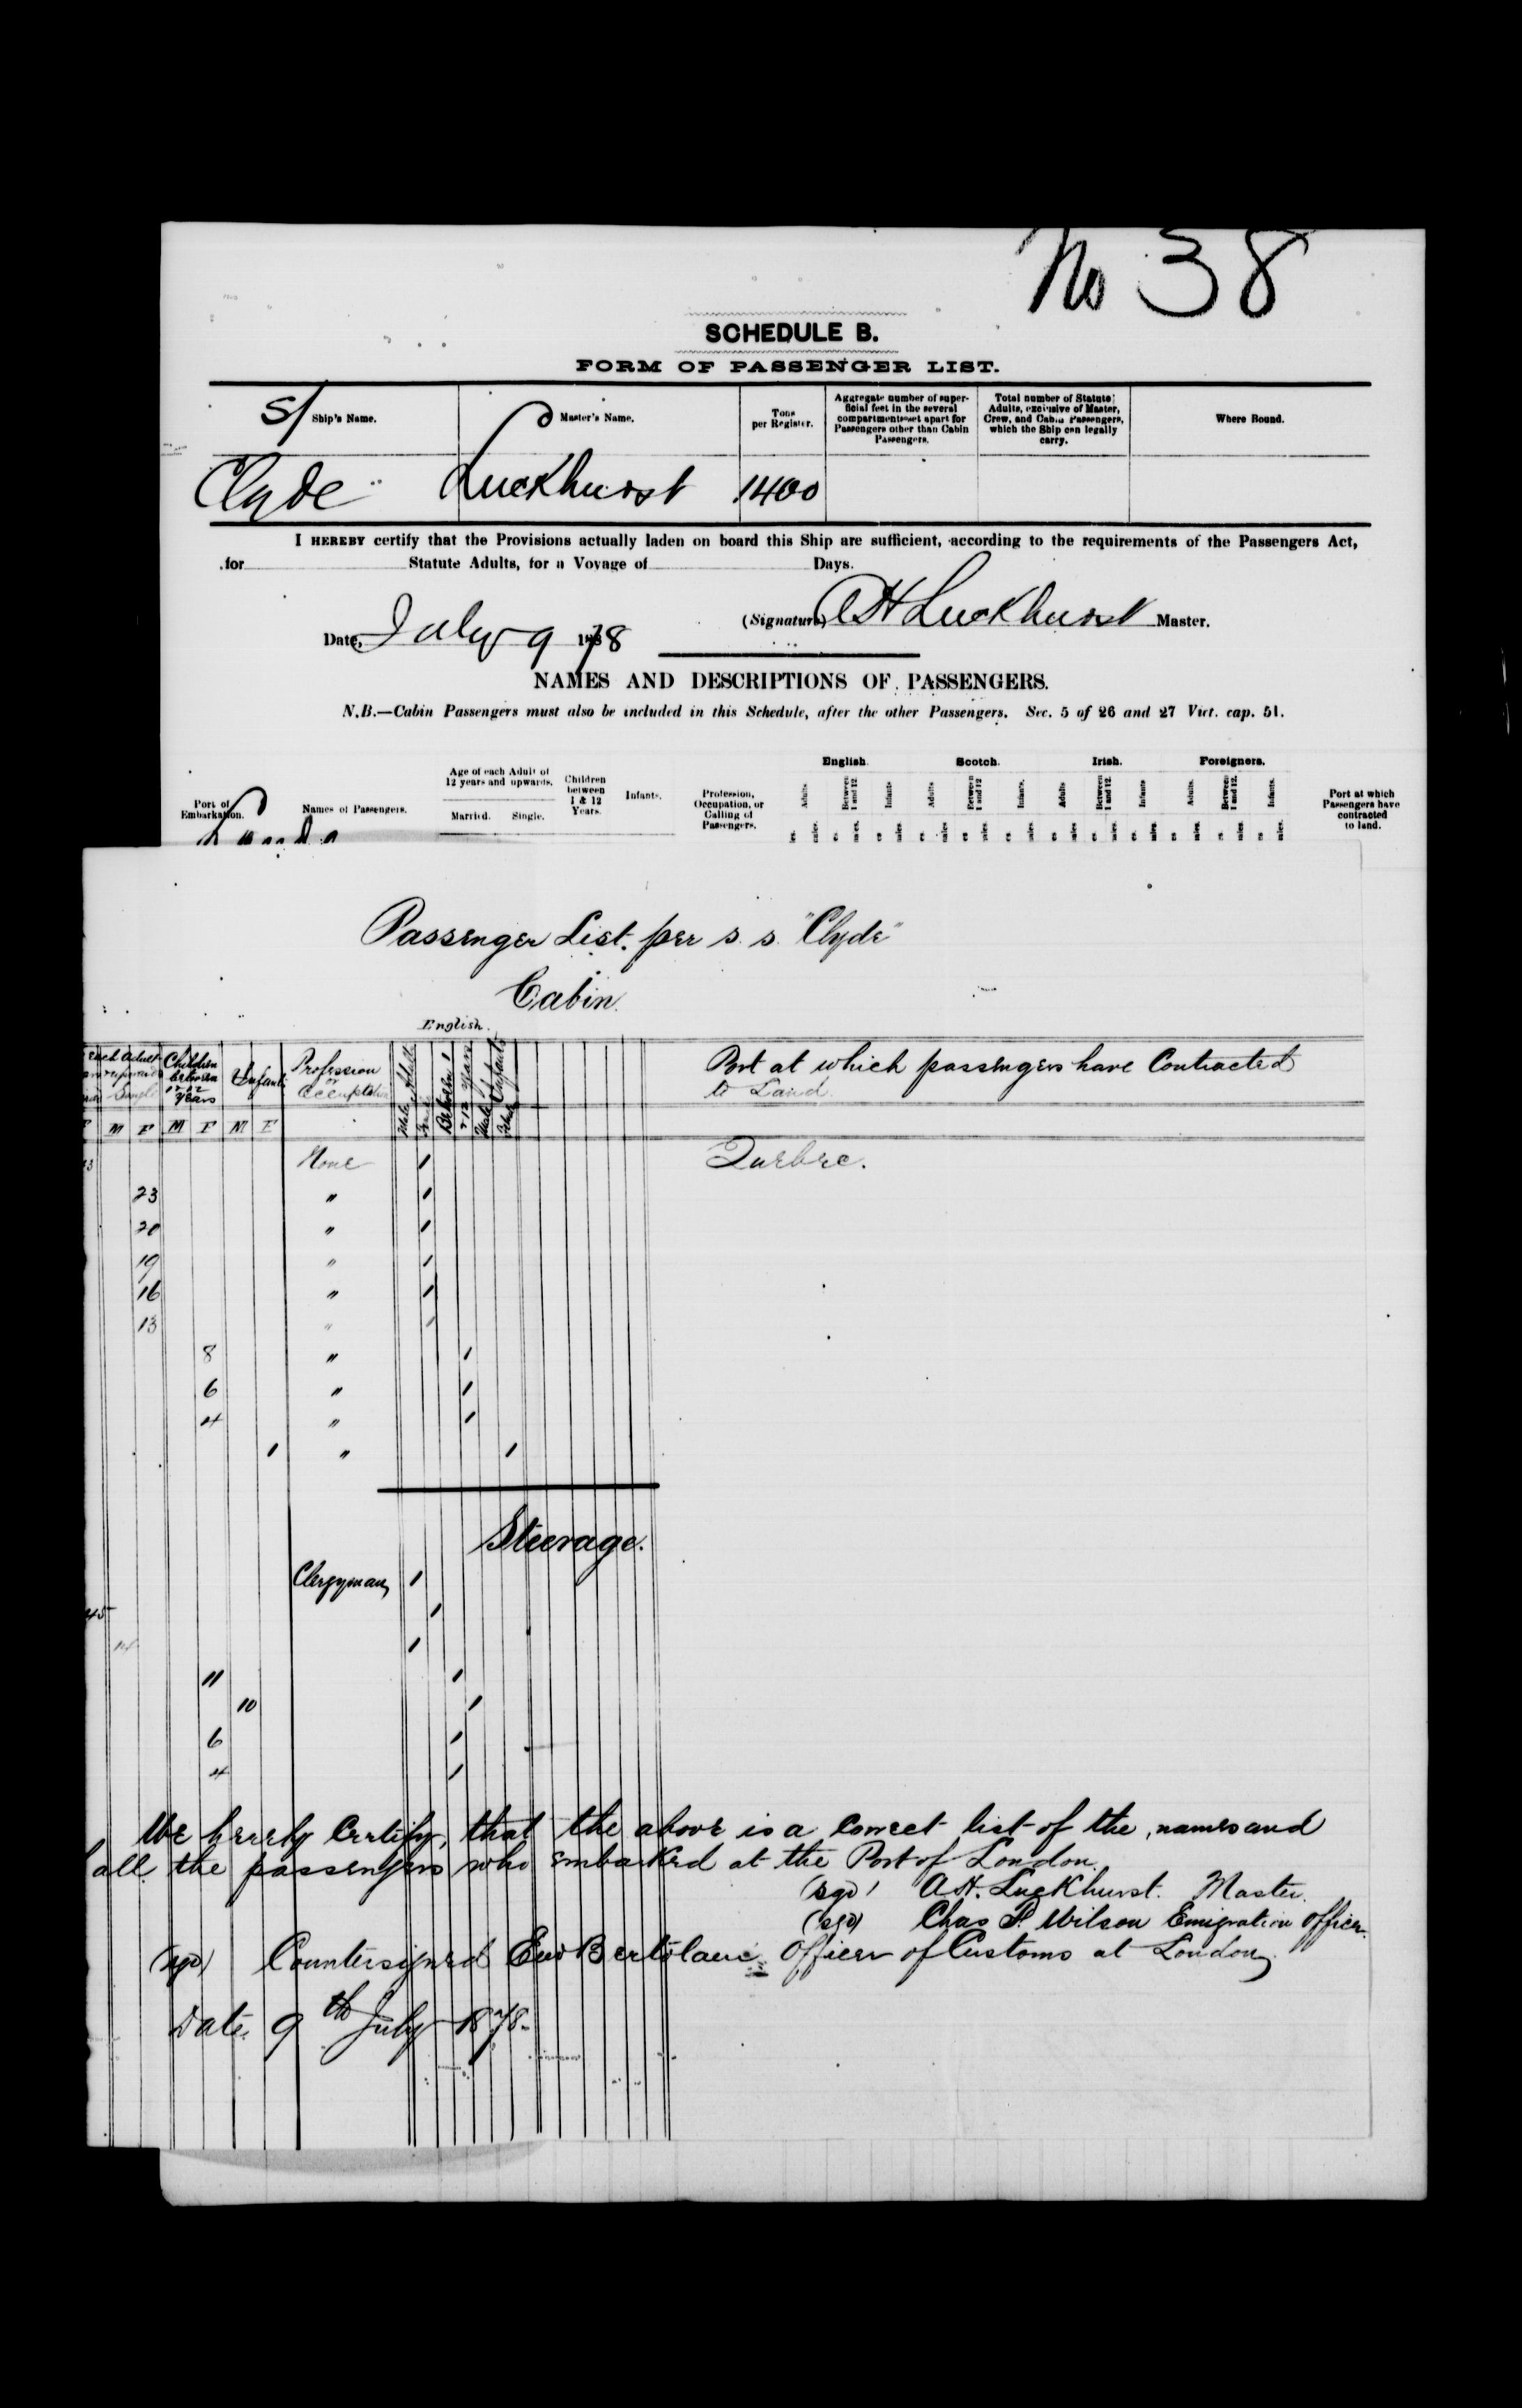 No 38
SCHEDULE B.
FORM OF PASSENGER LIST.
S/ Ship's Name. Master's Name. Tons per Register. Aggregate number of superficial feet in the several compartments set apart for Passengers other than Cabin Passengers. Total number of Statute Adults, exclusive of Master, Crew, and Cabin Passengers, which the Ship can legally carry. Where Bound.
Clyde Luckhurst 1400
I HEREBY certify that the Provisions actually laden on board this Ship are sufficient, according to the requirements of the Passengers Act,
for Statute Adults, for a Voyage of Days.
(Signature) A H Luckhurst Master.
Date, July 9 1878
NAMES AND DESCRIPTIONS OF PASSENGERS.
N.B.—Cabin Passengers must also be included in this Schedule, after the other Passengers. Sec. 5 of 26 and 27 Vict. cap. 51.
Port of Embarkation. Names of Passengers. Age of each Adult of 12 years and upwards. Married. Single. Children between 1 & 12 Years. Infants. Profession, Occupation, or Calling of Passengers. English. Scotch. Irish. Foreigners. Port at which Passengers have contracted to land.
Adults Between 1 and 12. Infants Adults Between 1 and 12 Infants. Adults Between 1 and 12. Infants Adults. Between 1 and 12. Infants.
Passenger List. per s. s. "Clyde"
Cabin.
English.
each adult Single Children between years Infants Profession or Occupation Male Adult Between 1 & 12 years Male Infants Port at which passengers have Contracted
to Land.
M F M F M F
3 None 1 Quebec.
23 " 1
20 " 1
19 " 1
16 " 1
13 " 1
8 " 1
6 " 1
4 " 1
1 " 1
Steerage.
Clergyman 1
45 1
14 1
11 1
10 1
6 1
4 1
We hereby Certify, that the above is a Correct list of the names and
all the passengers who embarked at the Port of London.
(sgd) A.H. Luckhurst. Master.
(sgd) Chas P. Wilson Emigration Officer.
(sgd) Countersigned Officer of Customs at London
Date 9th July 1878.